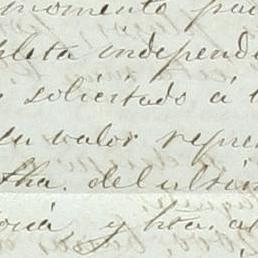 momento pa
pleta independ
solicitado á l
su valor repre
fha. del últim
oná, y hta. al